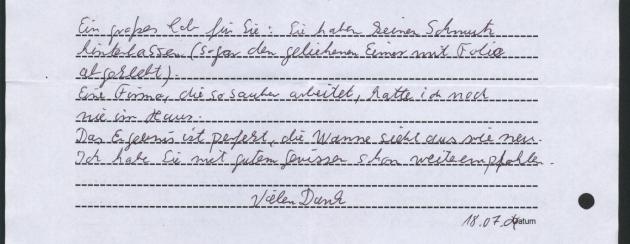 Ein großes Lob für Sie: Sie haben keinen Schmutz
hinterlassen (sogar den geliehenen Eimer mit Folie
abgeklebt).
Eine Firma, die so sauber arbeitet, hatte ich noch
nie im Haus.
Das Ergebnis ist perfekt, die Wanne sieht aus wie neu.
Ich habe Sie mit gutem Gewissen schon weiterempfohlen.
Vielen Dank
18.07. Datum